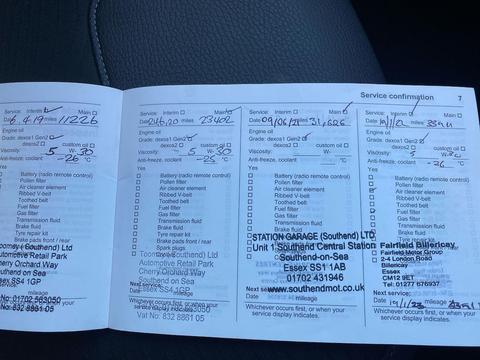 Service confirmation 7
Service: Interim Main
Date 6.4.19 mileage 11226
Engine oil
Grade: dexos1 Gen2
dexos2 custom oil
Viscosity: 5 W-30
Anti-freeze, coolant -26 °C
Yes
Battery (radio remote control)
Pollen filter
Air cleaner element
Ribbed V-belt
Toothed belt
Fuel filter
Gas filter
Transmission fluid
Brake fluid
Tyre repair kit
Brake pads front / rear
(Southend) Ltd
Automotive Retail Park
Cherry Orchard Way
Southend on Sea
Essex SS4 1GP
No: 01702 563050
No: 832 8861 05
Service: Interim Main
Date mileage 23402
Engine oil
Grade: dexos1 Gen2
dexos2 custom oil
Viscosity: 5 W-30
Anti-freeze, coolant -25 °C
Yes
Battery (radio remote control)
Pollen filter
Air cleaner element
Ribbed V-belt
Toothed belt
Fuel filter
Gas filter
Transmission fluid
Brake fluid
Tyre repair kit
Brake pads front / rear
Spark plugs
(Southend) Ltd
Automotive Retail Park
Cherry Orchard Way
Southend on Sea
Essex SS4 1GP
Whichever occurs first, or when your
service display indicates.
Vat No: 832 8861 05
Service: Interim Main
Date 09/06/21 31,626
Engine oil
Grade: dexos1 Gen2
dexos2 custom oil
Viscosity: W-
Anti-freeze, coolant °C
Yes
Battery (radio remote control)
Pollen filter
Air cleaner element
Ribbed V-belt
Toothed belt
Fuel filter
Gas filter
Transmission fluid
Brake fluid
Tyre repair kit
STATION GARAGE (Southend) Ltd
Unit 1 Southend Central Station
Southend-on-Sea
Essex SS1 1AB
01702 431946
www.southendmot.co.uk
Next service:
Date mileage
Whichever occurs first, or when your
service display indicates.
Service: Interim Main
Date 19/1/22 mileage
Engine oil
Grade: dexos1 Gen2
dexos2 custom oil
Viscosity: 5 W-30
Anti-freeze, coolant -26 °C
Yes
Battery (radio remote control)
Pollen filter
Air cleaner element
Ribbed V-belt
Toothed belt
Fuel filter
Gas filter
Transmission fluid
Brake fluid
Tyre repair kit
Fairfield Billericay
Fairfield Motor Group
2-4 London Road
Billericay
Essex
CM12 9ET
Tel: 01277 676937
Next service:
Date 19/1/23 mileage
Whichever occurs first, or when your
service display indicates.